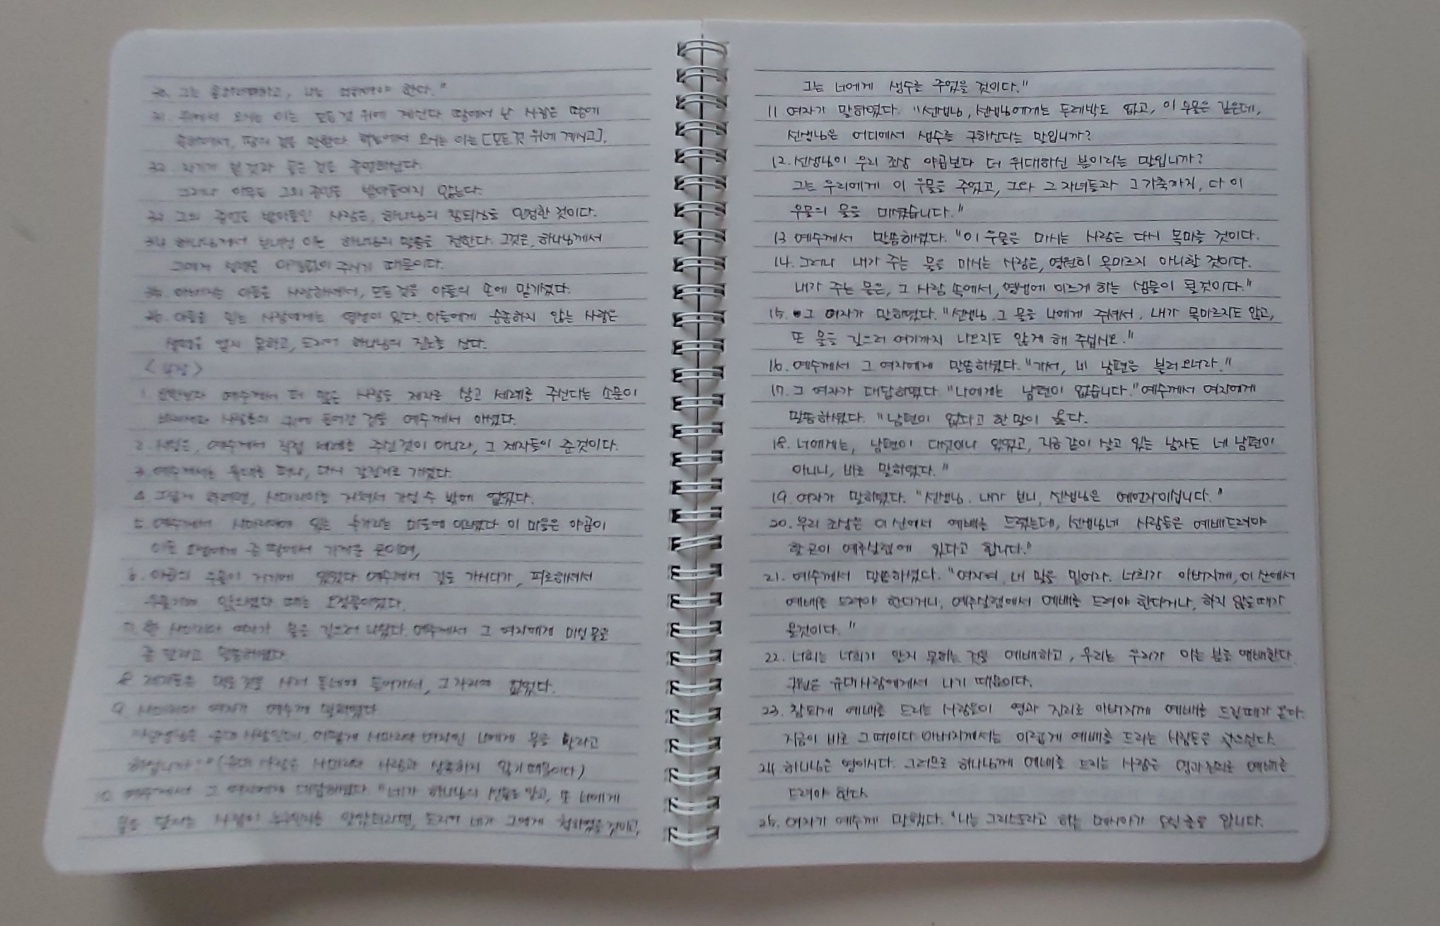 30. 그는 흥하여야하고, 나는 쇠하여야 한다."
31 위에서 오시는 이는 모든 것 위에 계신다 땅에서 난 사람은 땅에
속하여서, 땅의 것을 말한다 하늘에서 오시는 이는 [모든 것 위에 계시고],
32. 자기가 본 것과 들은 것을 증언하신다.
그러나 아무도 그의 증언을 받아들이지 않는다.
33 그의 증언을 받아들인 사람은, 하나님의 참되심을 인정한 것이다.
34 하나님께서 보내신 이는 하나님의 말씀을 전한다. 그것은, 하나님께서
그에게 성령을 아낌없이 주시기 때문이다.
35. 아버지는 아들을 사랑하셔서, 모든 것을 아들의 손에 맡기셨다.
36. 아들을 믿는 사람에게는 영생이 있다. 아들에게 순종하지 않는 사람은
생명을 얻지 못하고, 도리어 하나님의 진노를 산다.
< 4장 >
1. 요한보다 예수께서 더 많은 사람을 제자로 삼고 세례를 주신다는 소문이
바리새파 사람들의 귀에 들어간 것을 예수께서 아셨다.
2. 사실은, 예수께서 직접 세례를 주신 것이 아니라, 그 제자들이 준것이다.
3. 예수께서는 유대를 떠나, 다시 갈릴리로 가셨다.
4. 그렇게 하려면, 사마리아를 거쳐서 가실 수 밖에 없었다.
5. 예수께서 사마리아에 있는 수가라는 마을에 이르셨다 이 마을은 야곱이
아들 요셉에게 준 땅에서 가까운 곳이며,
6. 야곱의 우물이 거기에 있었다 예수께서 길을 가시다가, 피로하셔서
우물가에 앉으셨다 때는 오정쯤이었다.
7. 한 사마리아 여자가 물을 길으러 나왔다. 예수께서 그 여자에게 마실 물을
좀 달라고 말씀하셨다.
8 제자들은 먹을 것을 사러 동네에 들어가서, 그 자리에 없었다.
9. 사마리아 여자가 예수께 말하였다
하셨습니까?" (유대 사람은 사마리아 사람과 상종하지 않기 때문이다)
10 예수께서 그 여자에게 대답하셨다 "네가 하나님의 선물을 알고, 또 너에게
물을 달라는 사람이 누구인지를 알았더라면, 도리어 네가 그에게 청하였을 것이고,
그는 너에게 생수를 주었을 것이다."
11 여자가 말하였다. "선생님, 선생님에게는 두레박도 없고, 이 우물은 깊은데,
선생님은 어디에서 생수를 구하신다는 말입니까?
12. 선생님이 우리 조상 야곱보다 더 위대하신 분이라는 말입니까?
그는 우리에게 이 우물을 주었고, 그와 그 자녀들과 그 가축까지, 다 이
우물의 물을 마셨습니다."
13 예수께서 말씀하셨다. "이 우물을 마시는 사람은 다시 목마를 것이다.
14. 그러나 내가 주는 물을 마시는 사람은, 영원히 목마르지 아니할 것이다.
내가 주는 물은, 그 사람 속에서, 영생에 이르게 하는 샘물이 될것이다."
15. 그 여자가 말하였다. "선생님, 그 물을 나에게 주셔서, 내가 목마르지도 않고,
또 물을 길으러 여기까지 나오지도 않게 해 주십시오."
16. 예수께서 그 여자에게 말씀하셨다. "가서, 네 남편을 불러 오너라."
17. 그 여자가 대답하였다 "나에게는 남편이 없습니다." 예수께서 여자에게
말씀하셨다. "남편이 없다고 한 말이 옳다.
18. 너에게는, 남편이 다섯이나 있었고, 지금 같이 살고 있는 남자도 네 남편이
아니니, 바로 말하였다."
19. 여자가 말하였다. "선생님. 내가 보니, 선생님은 예언자이십니다."
20. 우리 조상은 이 산에서 예배를 드렸는데, 선생님네 사람들은 예배드려야
할 곳이 예루살렘에 있다고 합니다."
21. 예수께서 말씀하셨다. "여자여, 내 말을 믿어라. 너희가 아버지께, 이 산에서
예배를 드려야 한다거니, 예루살렘에서 예배를 드려야 한다거니, 하지 않을 때가
올것이다."
22. 너희는 너희가 알지 못하는 것을 예배하고, 우리는 우리가 아는 분을 예배한다.
구원은 유대사람에게서 나기 때문이다.
23. 참되게 예배를 드리는 사람들이 영과 진리로 아버지께 예배를 드릴때가 온다.
지금이 바로 그 때이다 아버지께서는 이렇게 예배를 드리는 사람들을 찾으신다.
24. 하나님은 영이시다. 그러므로 하나님께 예배를 드리는 사람은 영과 진리로 예배를
드려야 한다
25. 여자가 예수께 말했다. "나는 그리스도라고 하는 메시아가 오실 것을 압니다.